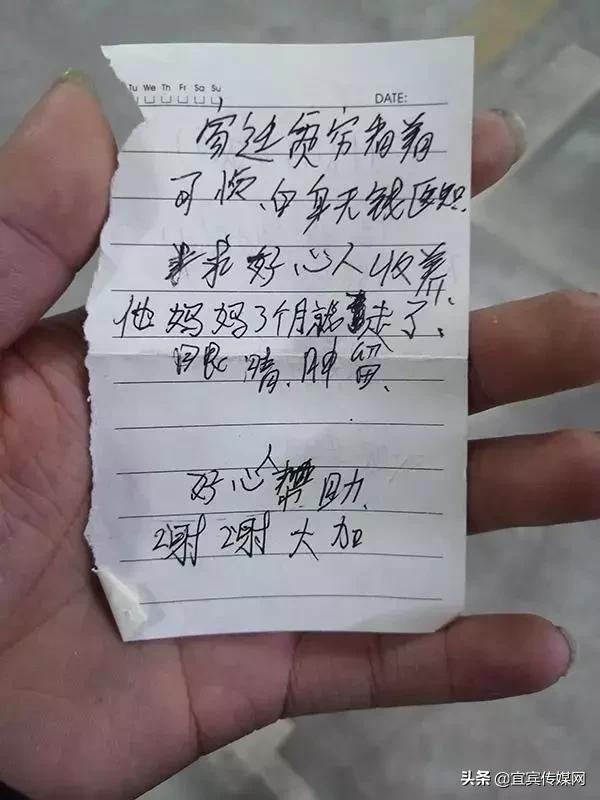 Tu We Th Fr Sa Su
DATE:
家廷贫穷看着
可怜、自身无钱医
求求好心人收养、
他妈妈3个月就走了、
眼睛、肿留、
好心人帮助、
谢谢大加
头条 @宜宾传媒网